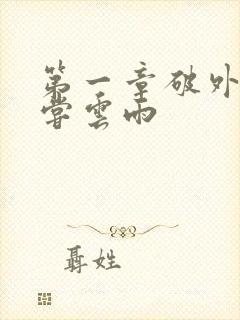 第一章破外
嘗雲雨
聶姓